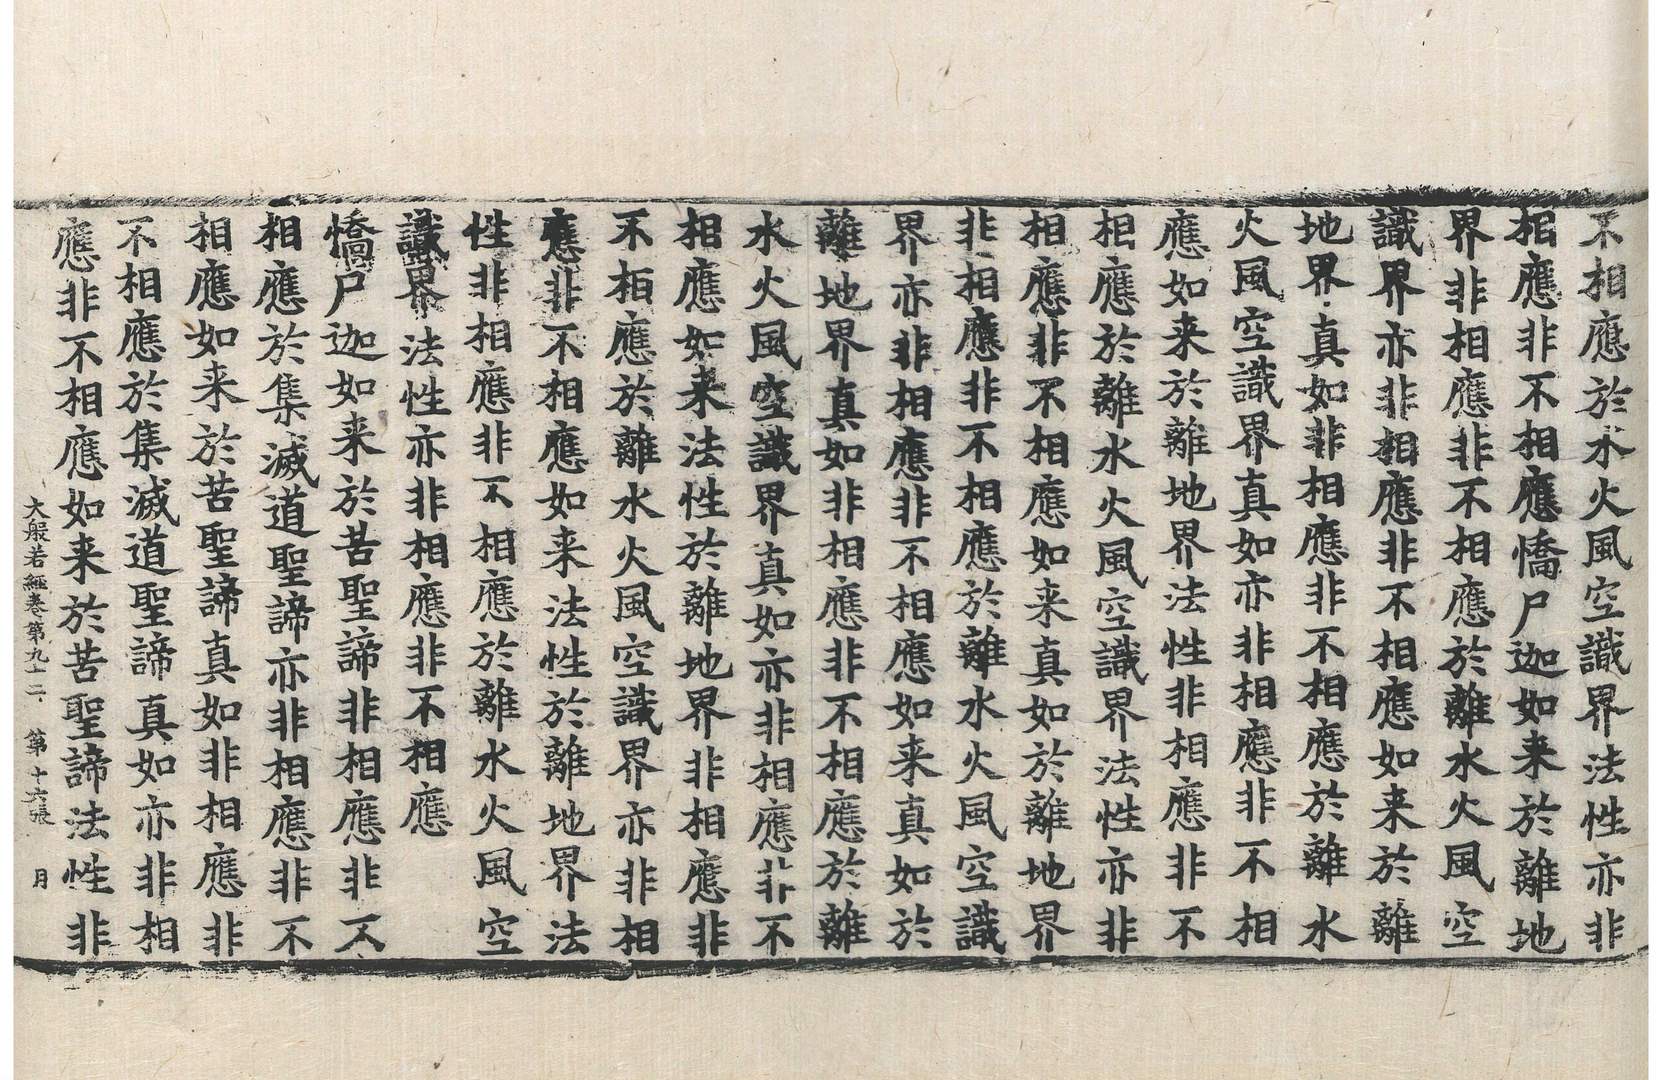 不相應於水火風空識界法性亦非
相應非不相應憍尸迦如来於離地
界非相應非不相應於離水火風空
識界亦非相應非不相應如来於離
地界真如非相應非不相應於離水
火風空識界真如亦非相應非不相
應如来於離地界法性非相應非不
相應於離水火風空識界法性亦非
相應非不相應如来真如於離地界
非相應非不相應於離水火風空識
界亦非相應非不相應如来真如於
離地界真如非相應非不相應於離
水火風空識界真如亦非相應非不
相應如来法性於離地界非相應非
不相應於離水火風空識界亦非相
應非不相應如来法性於離地界法
性非相應非不相應於離水火風空
識界法性亦非相應非不相應
憍尸迦如来於苦聖諦非相應非不
相應於集滅道聖諦亦非相應非不
相應如来於苦聖諦真如非相應非
不相應於集滅道聖諦真如亦非相
應非不相應如来於苦聖諦法性非
大般若經卷第九十二 第十六張 月